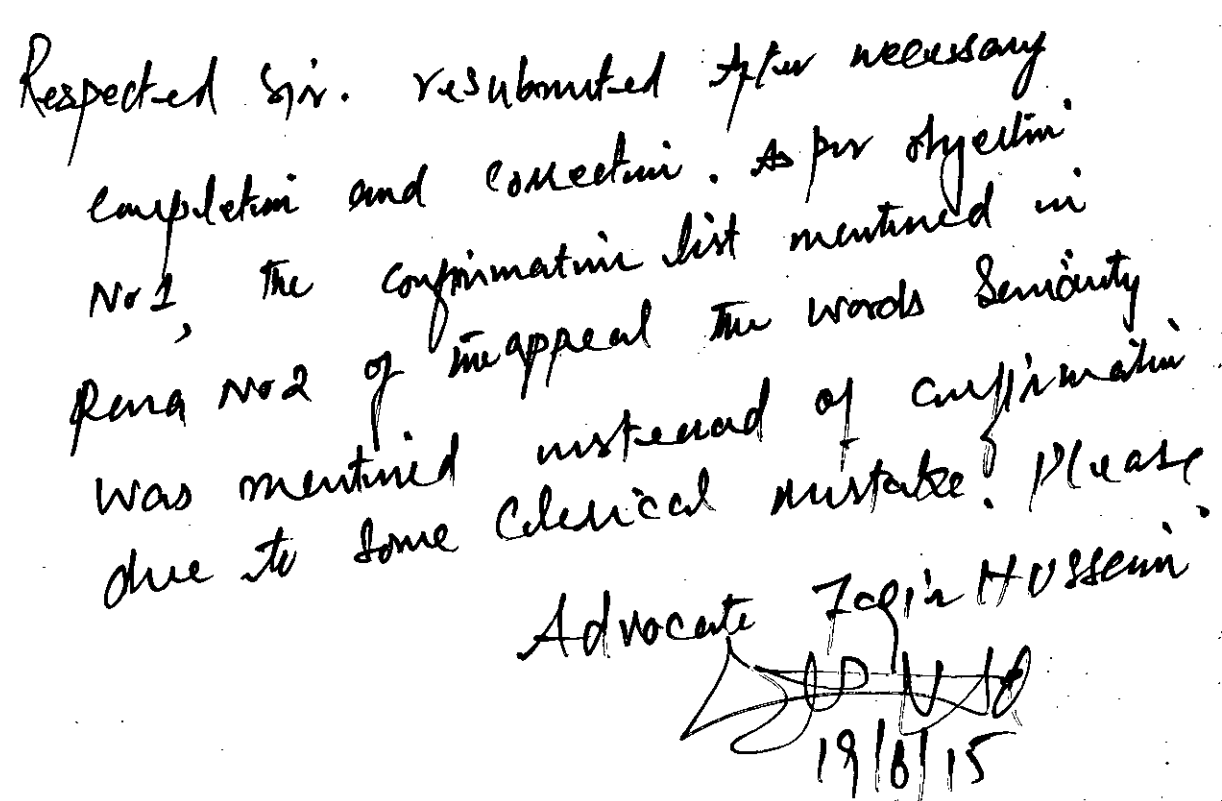 Respected Sir. resubmitted After necessary
completion and correction. As per objection
No 1, The confirmation list mentioned in
Para No 2 of the appeal the words Seniority
was mentioned insteaad of confirmation
due to some Clerical mistake. Please
Advocate Faqir Hussein
19/6/15